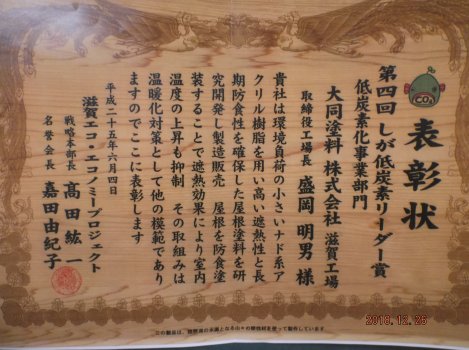 表彰状
CO₂
第四回 しが低炭素リーダー賞
低炭素化事業部門
大同塗料 株式会社 滋賀工場
取締役工場長 盛岡 明男 様
貴社は環境負荷の小さいナド系ア
クリル樹脂を用い高い遮熱性と長
期防食性を確保した屋根塗料を研
究開発し製造販売 屋根を防食塗
装することで遮熱効果により室内
温度の上昇も抑制 その取組みは
温暖化対策として他の模範であり
ますのでここに表彰します
平成二十五年六月四日
滋賀エコ・エコノミープロジェクト
戦略本部長 髙田 紘一
名誉会長 嘉田由紀子
この製品は、琵琶湖の水源となる山々の間伐材を使って製作しています。
2018.12.25